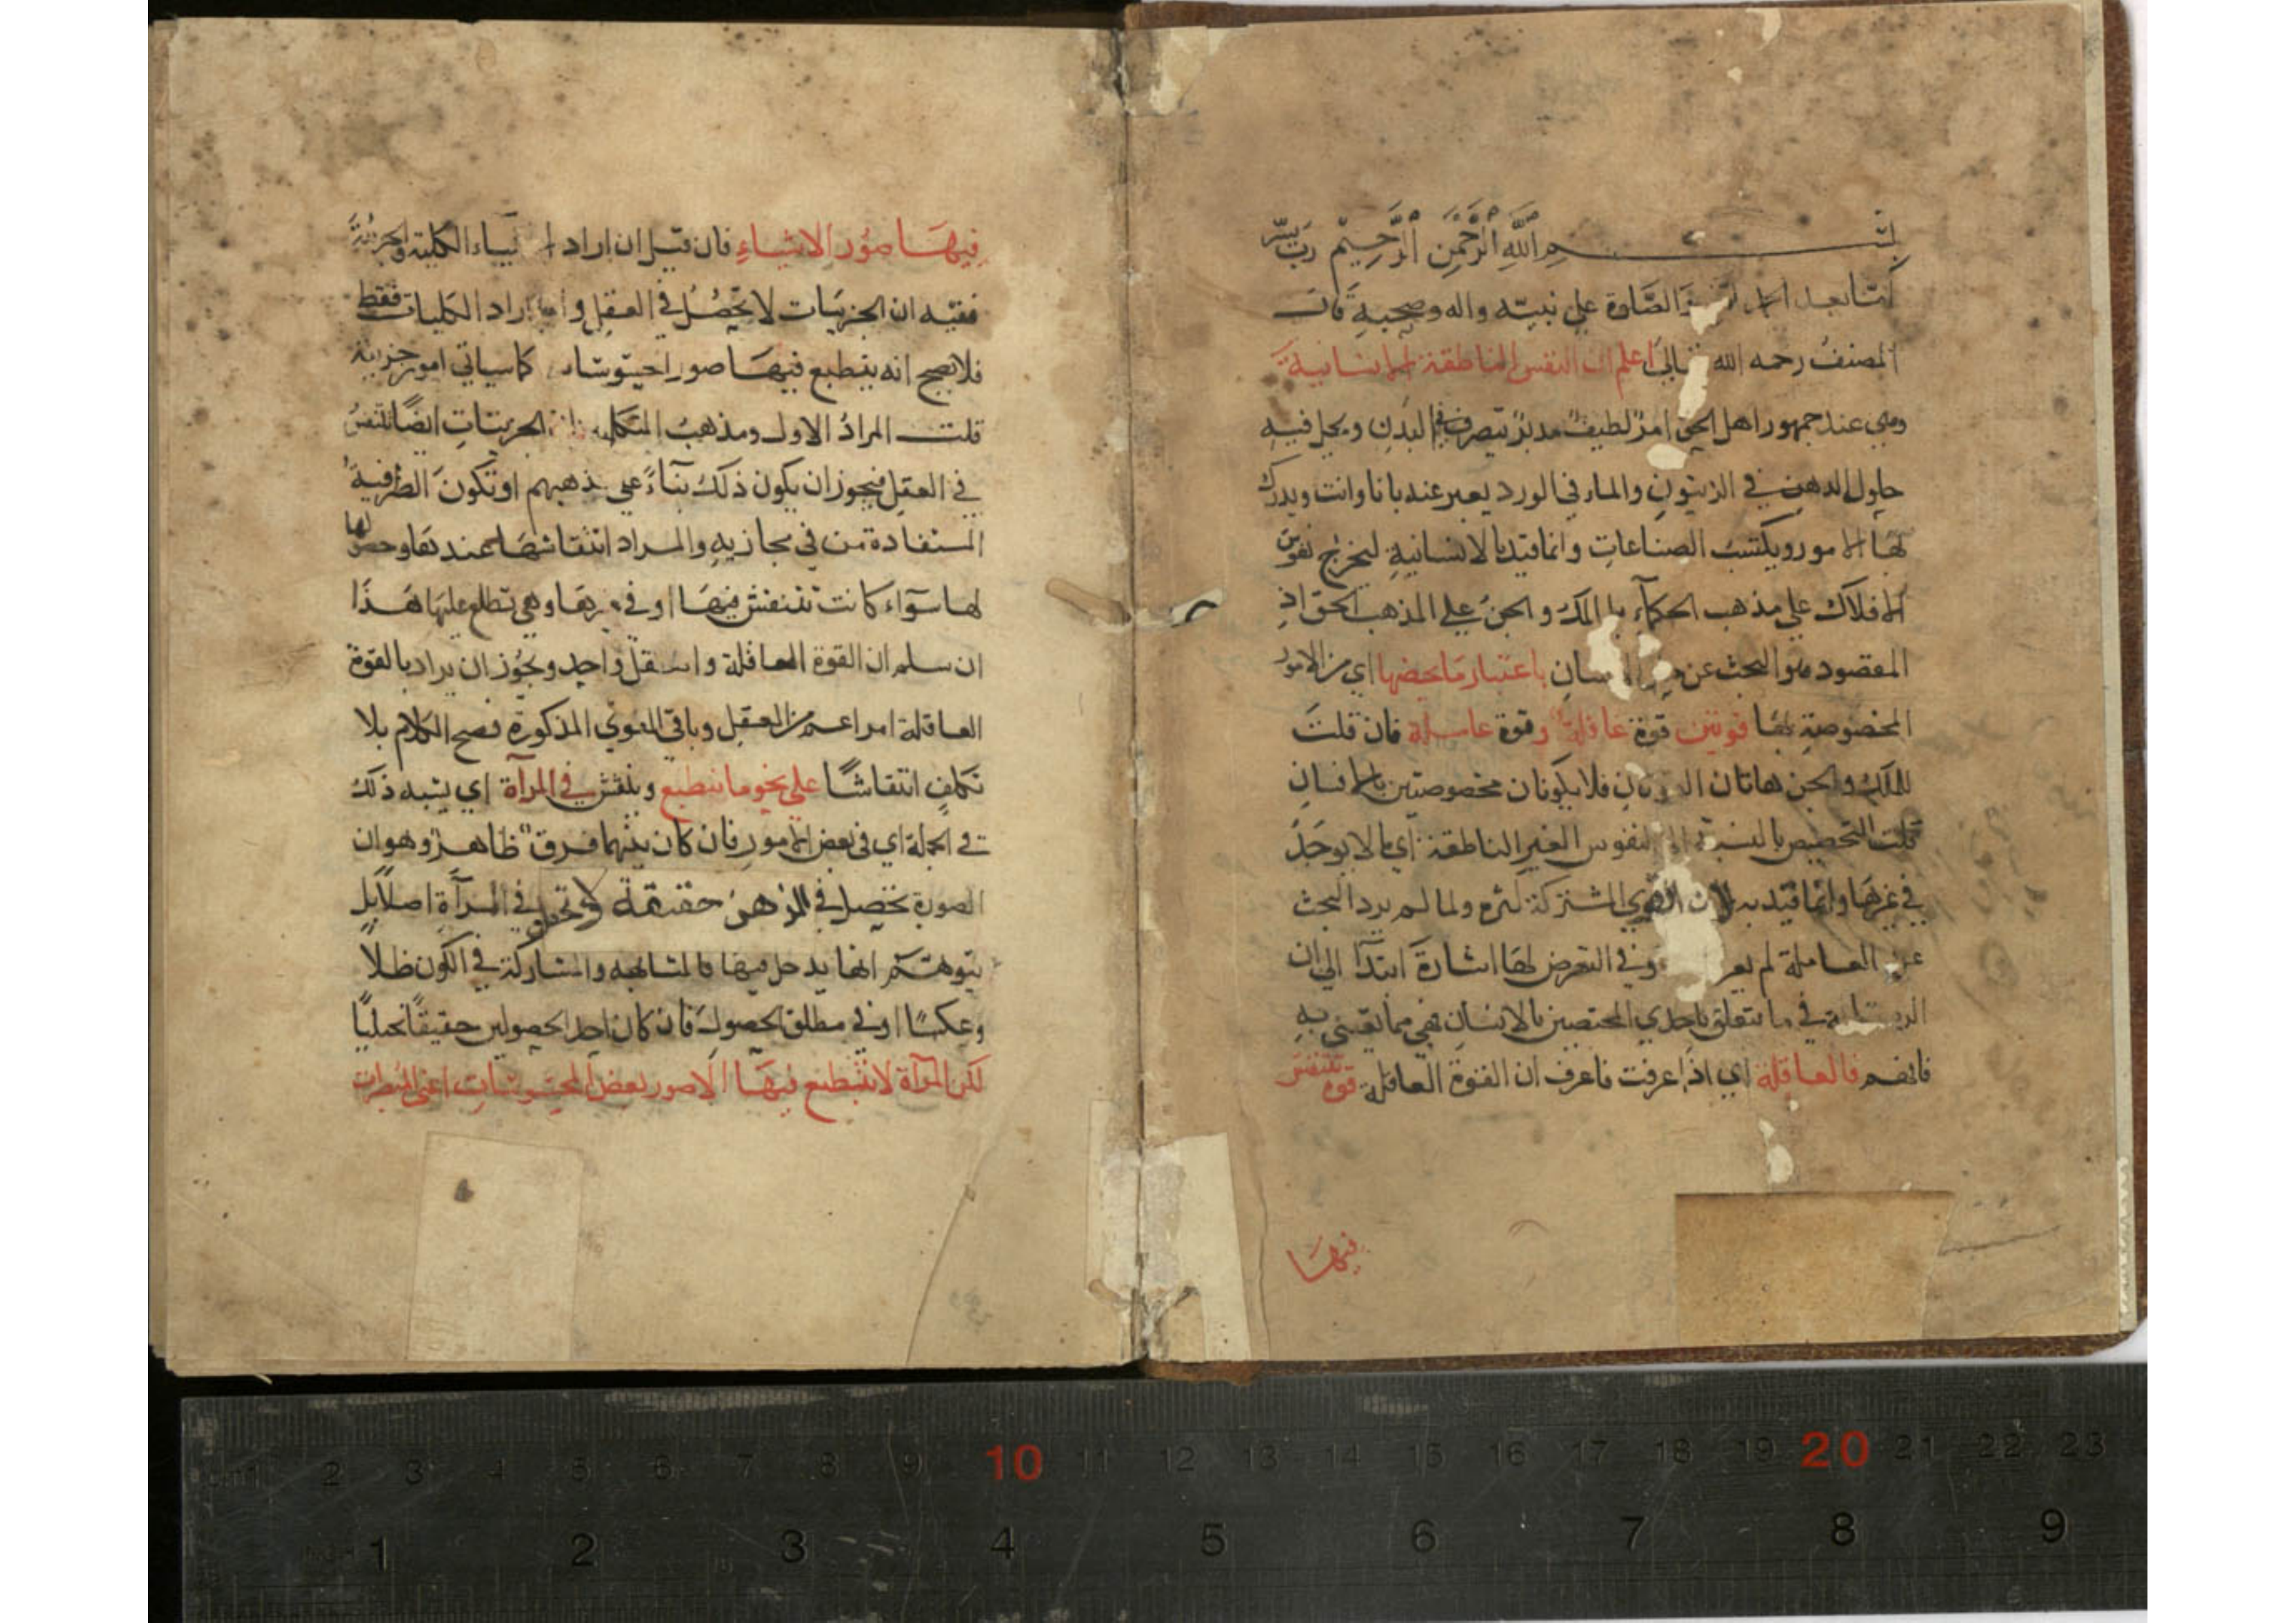 بسم الله الرحمن الرحيم رب يسر
والصلوة على نبيه واله وصحبه قال
المصنف رحمه الله اعلم ان النفس الناطقة الانسانية
وهي عند جمهور اهل الحق امر لطيف مدبر يتصرف في البدن ويحل فيه
حلول الدهن في الزيتون والماء في الورد يعبر عنه بانا وانت ويدرك
لها الامور ويكتسب الصناعات وانما قيد بالانسانية ليخرج نفوس
الافلاك على مذهب الحكماء والملك والجن على المذهب الحق اذ
المقصود هو البحث عن باعتبار ما يخصها اي من الامور
المخصوصة بها قوتين قوة عاقلة وقوة عاملة فان قلت
للملك والجن هاتان فلا يكونان مخصوصتين بالانسان
قلت التخصيص بالنسبة الى النفوس الغير الناطقة اي ما لا يوجد
في غيرها وانما قيد به لان القوى المشتركة كثيرة ولما لم يرد البحث
عن العاملة لم وفي التعرض لها اشارة ابتداء الى ان
في ما يتعلق باحدى المختصين بالانسان فهي مما يعتنى به
فافهم فالعاقلة اي اذا عرفت فاعرف ان القوة العاقلة قوة تنتقش
فيها
فيها صور الاشياء فان قيل ان اراد الكلية والجزئية
ففيه ان الجزئيات لا تحصل في العقل وان اراد الكليات فقط
فلا يصح انه ينطبع فيها صور كما سياتي امور جزئية
قلت المراد الاول ومذهب الجزئيات ايضا تنتقش
في العقل فيجوز ان يكون ذلك بناء على مذهبهم او تكون الظرفية
المستفادة من في مجازية والمراد انتقاشها عندها وحصولها
لها سواء كانت تنتقش فيها او في غيرها وهي تطلع عليها هذا
ان سلم ان القوة العاقلة والعقل واحد ويجوز ان يراد بالقوة
العاقلة امر اعم من العقل وباقي القوى المذكورة فصح الكلام بلا
تكلف انتقاشا على نحو ما ينطبع وينتقش في المرآة اي يشبه ذلك
في الجملة اي في بعض الامور فان كان بينهما فرق ظاهر وهو ان
الصورة تحصل في الذهن حقيقة ولا تحصل في المرآة اصلا بل
يتوهم انها يدخل فيها فالمشابهة والمشاركة في الكون ظلا
وعكسا او في مطلق الحصول فان كان احد الحصولين حقيقا تخيليا
لكن المرآة لا تنطبع فيها الا صور بعض المحسوسات اعني المبصرات